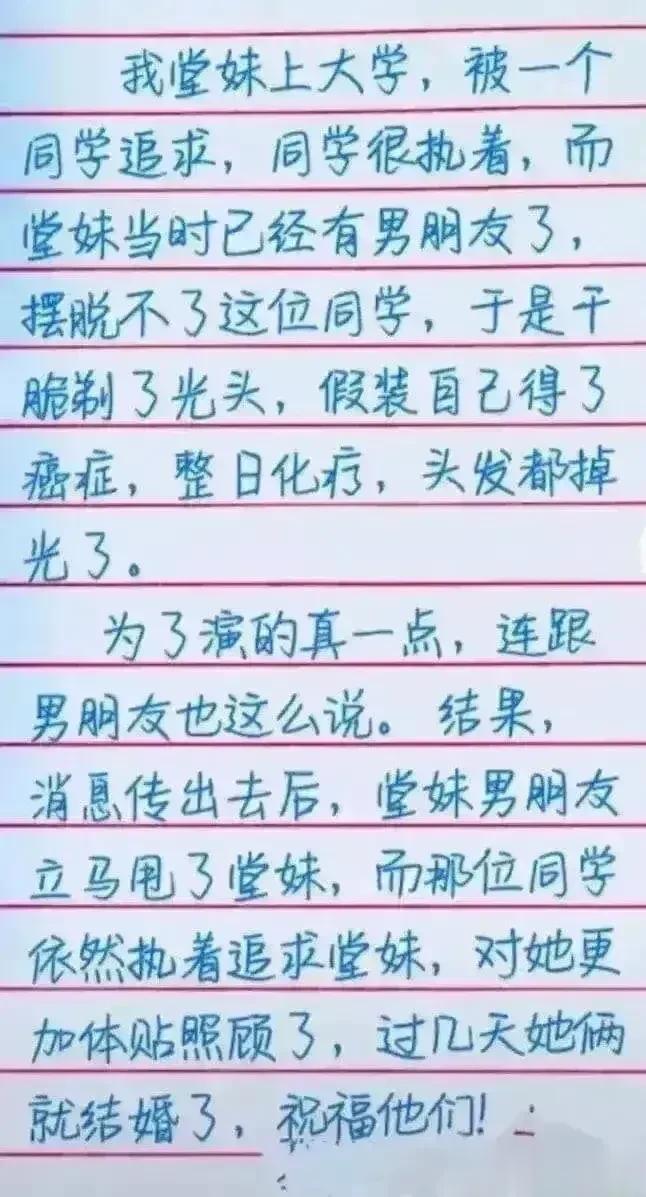 我堂妹上大学，被一个
同学追求，同学很执着，而
堂妹当时已经有男朋友了，
摆脱不了这位同学，于是干
脆剃了光头，假装自己得了
癌症，整日化疗，头发都掉
光了。
为了演的真一点，连跟
男朋友也这么说。结果，
消息传出去后，堂妹男朋友
立马甩了堂妹，而那位同学
依然执着追求堂妹，对她更
加体贴照顾了，过几天她俩
就结婚了，祝福他们!